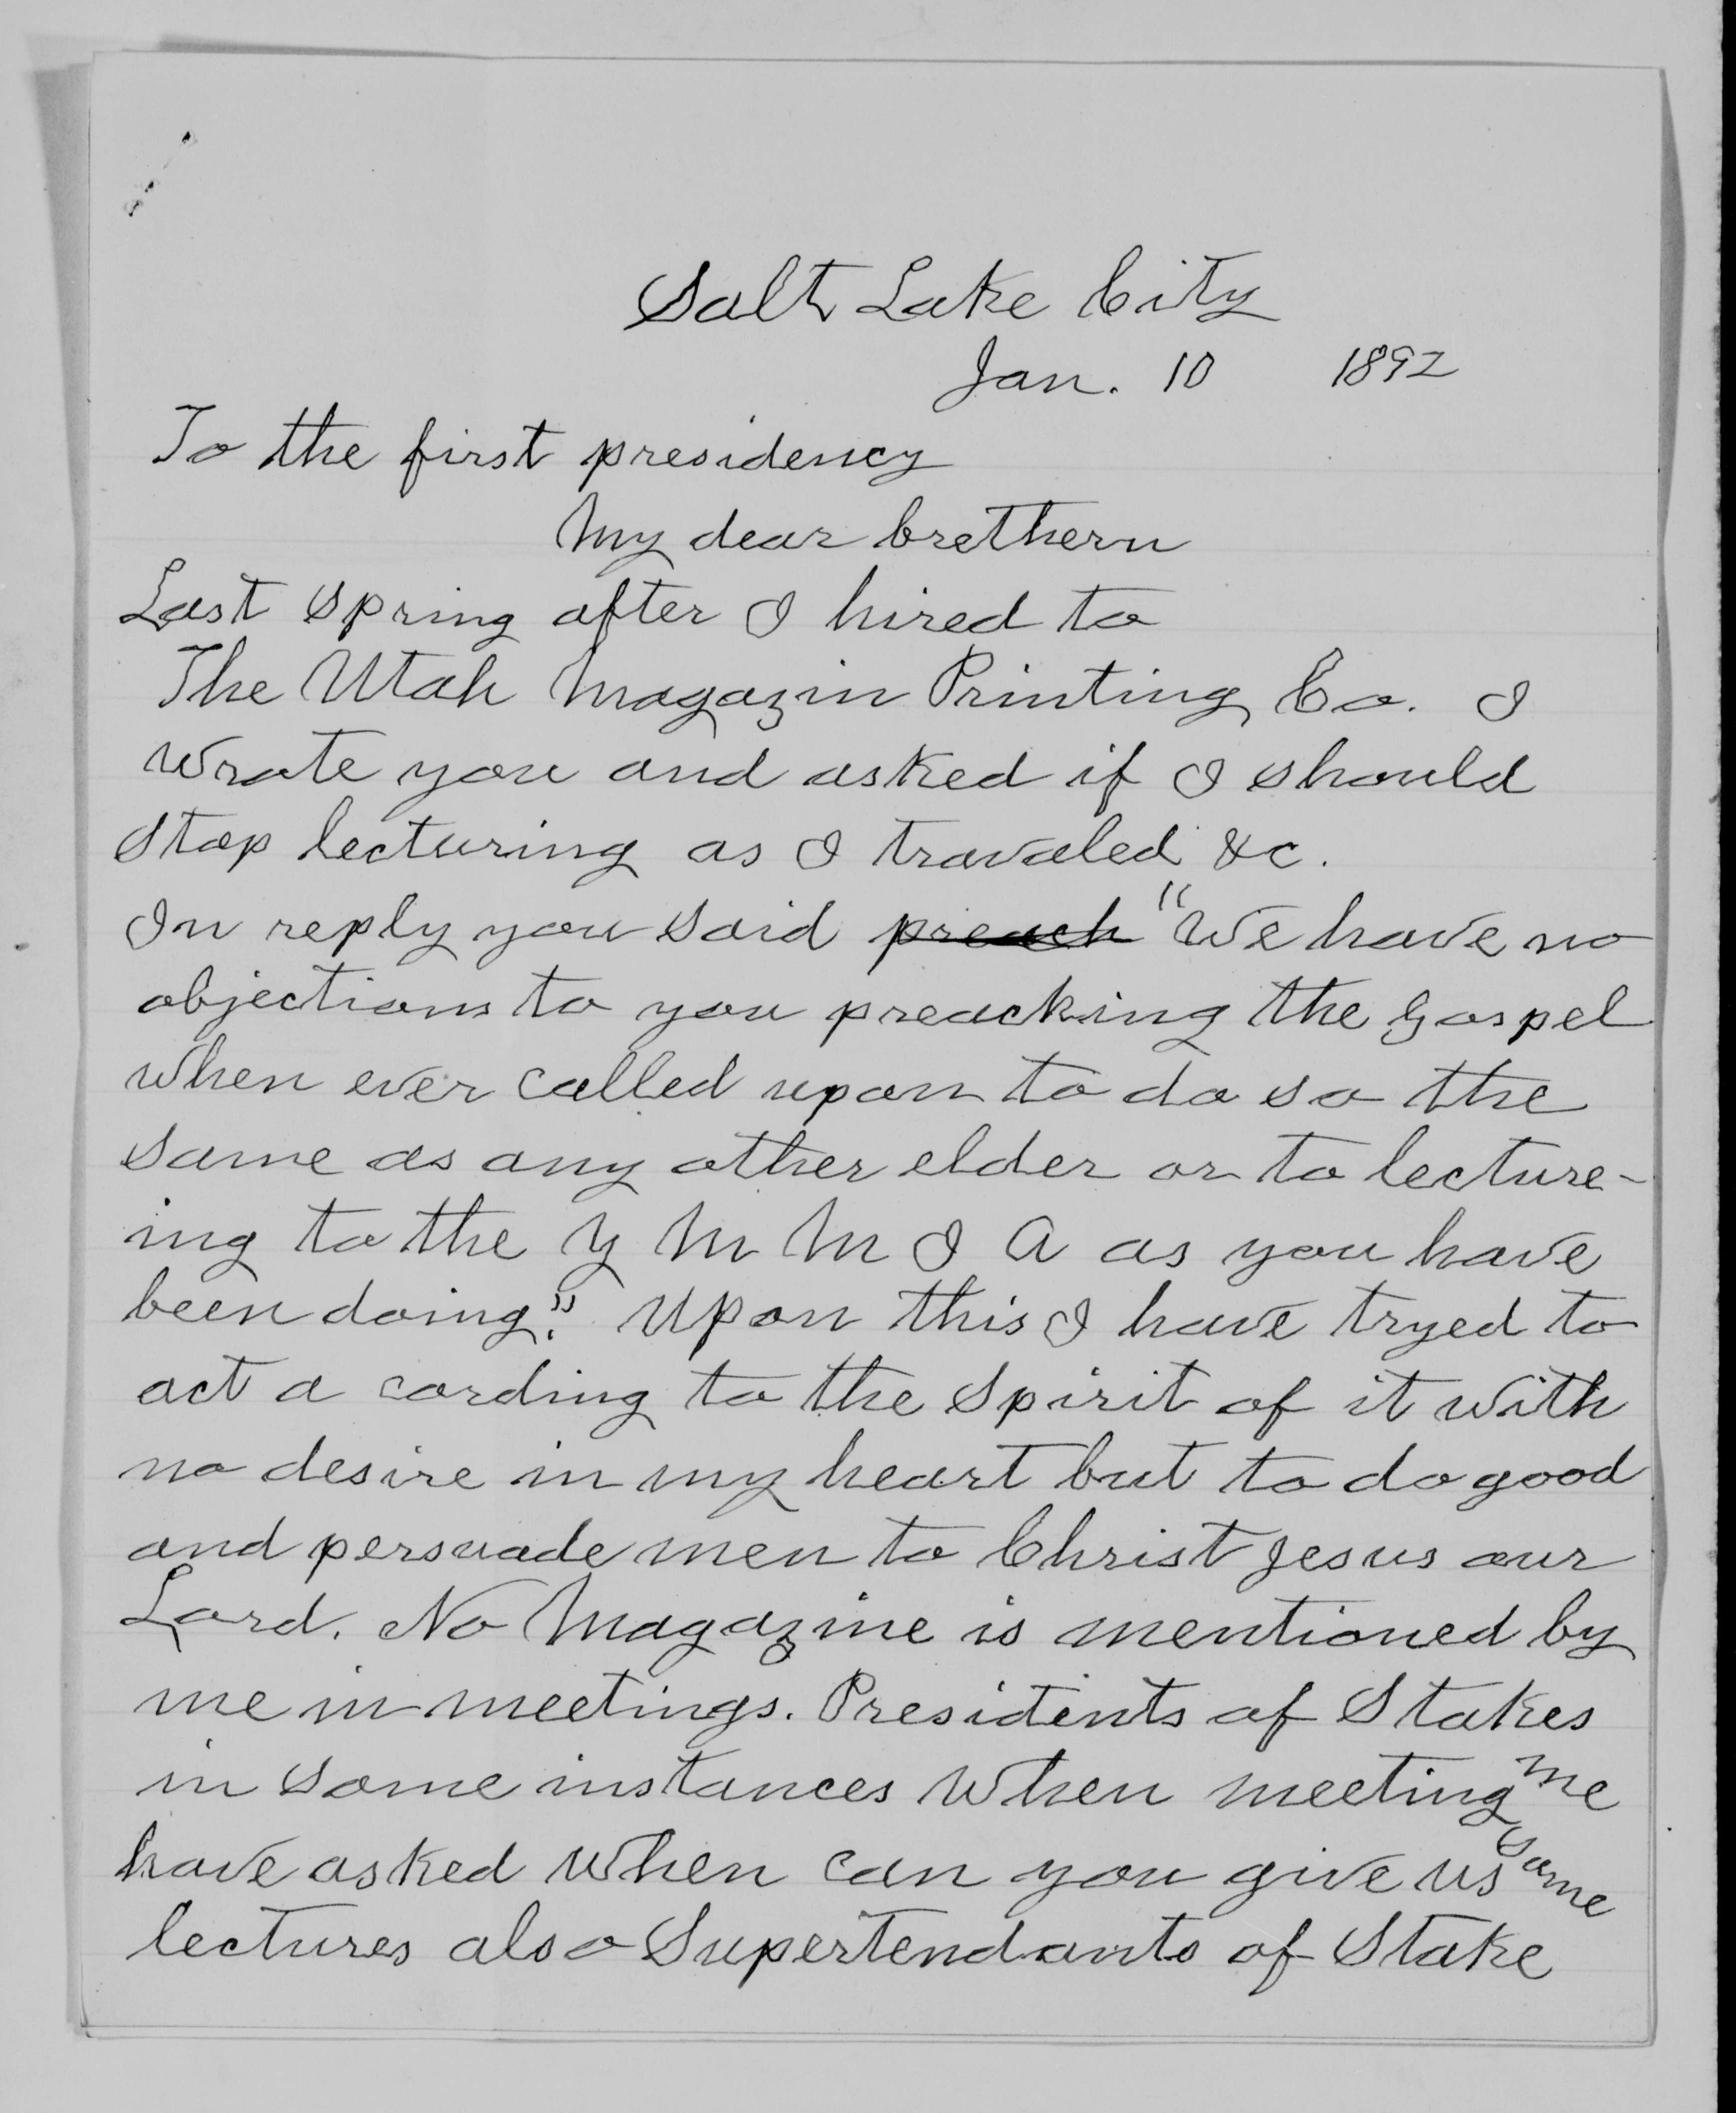 Salt Lake City
Jan. 10 1892
To the first presidency
My dear brethern
Last spring after I hired to
The Utah Magazin Printing Co. I
wrote you and asked if I should
stop lecturing as I traveled &c.
In reply you said preach "We have no
objections to you preacking the gospel
when ever called upon to do so the
same as any other elder or to lecture-
ing to the Y M M I A as you have
been doing." Upon this I have tryed to
act a cording to the spirit of it with
no desire in my heart but to do good
and persuade men to Christ Jesus our
Lord. No Magazine is mentioned by
me in meetings. Presidents of Stakes
in some instances when meeting me
have asked when can you give us some
lectures also Supertendants of Stake